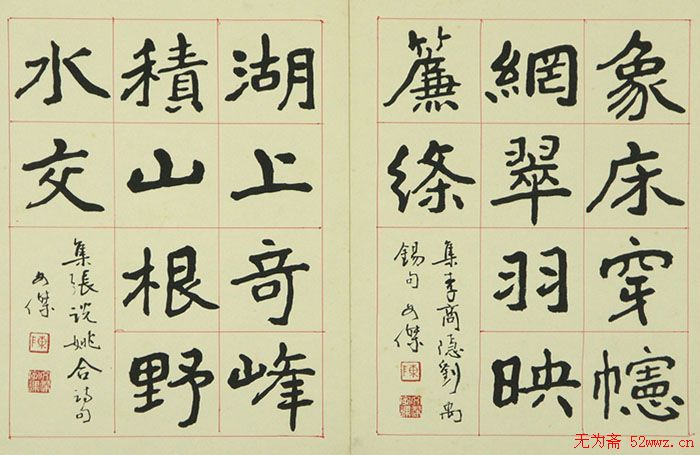 象床穿幰
網翠羽映
簾絛
集李商隱劉禹
錫句 傑
陳
湖上奇峰
積山根野
水交
集張說姚合詩句
傑
陳
无为斋 52wwz.cn